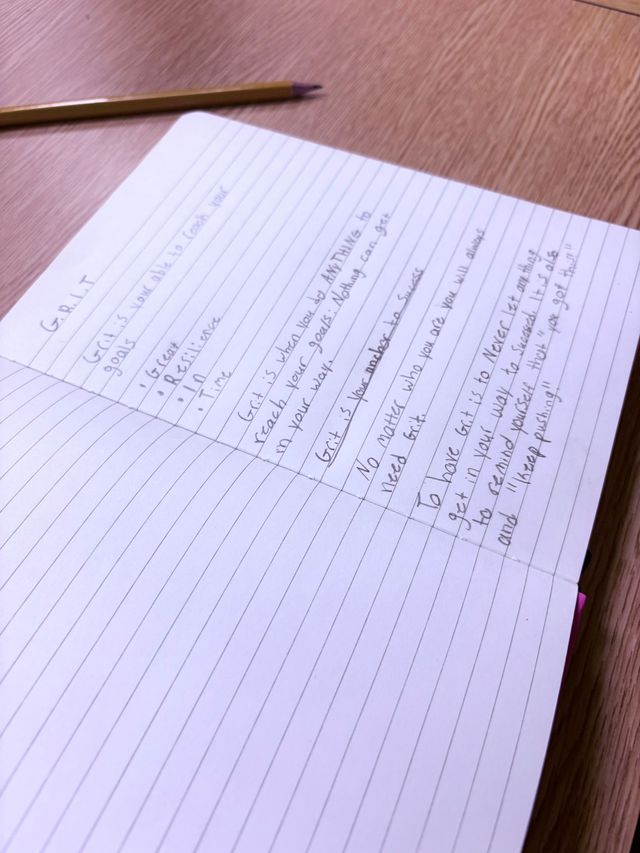 G.R.I.T
Grit is your able to reach your
goals
• Great
• Resilience
• In
• Time
Grit is when you to ANYTHING to
reach your goals. Nothing can get
in your way.
Grit is your anchor to success
No matter who you are you will always
need Grit.
To have Grit is to Never let anything
get in your way to succeed. It is also
to remind yourself that "you got this"
and "keep pushing"